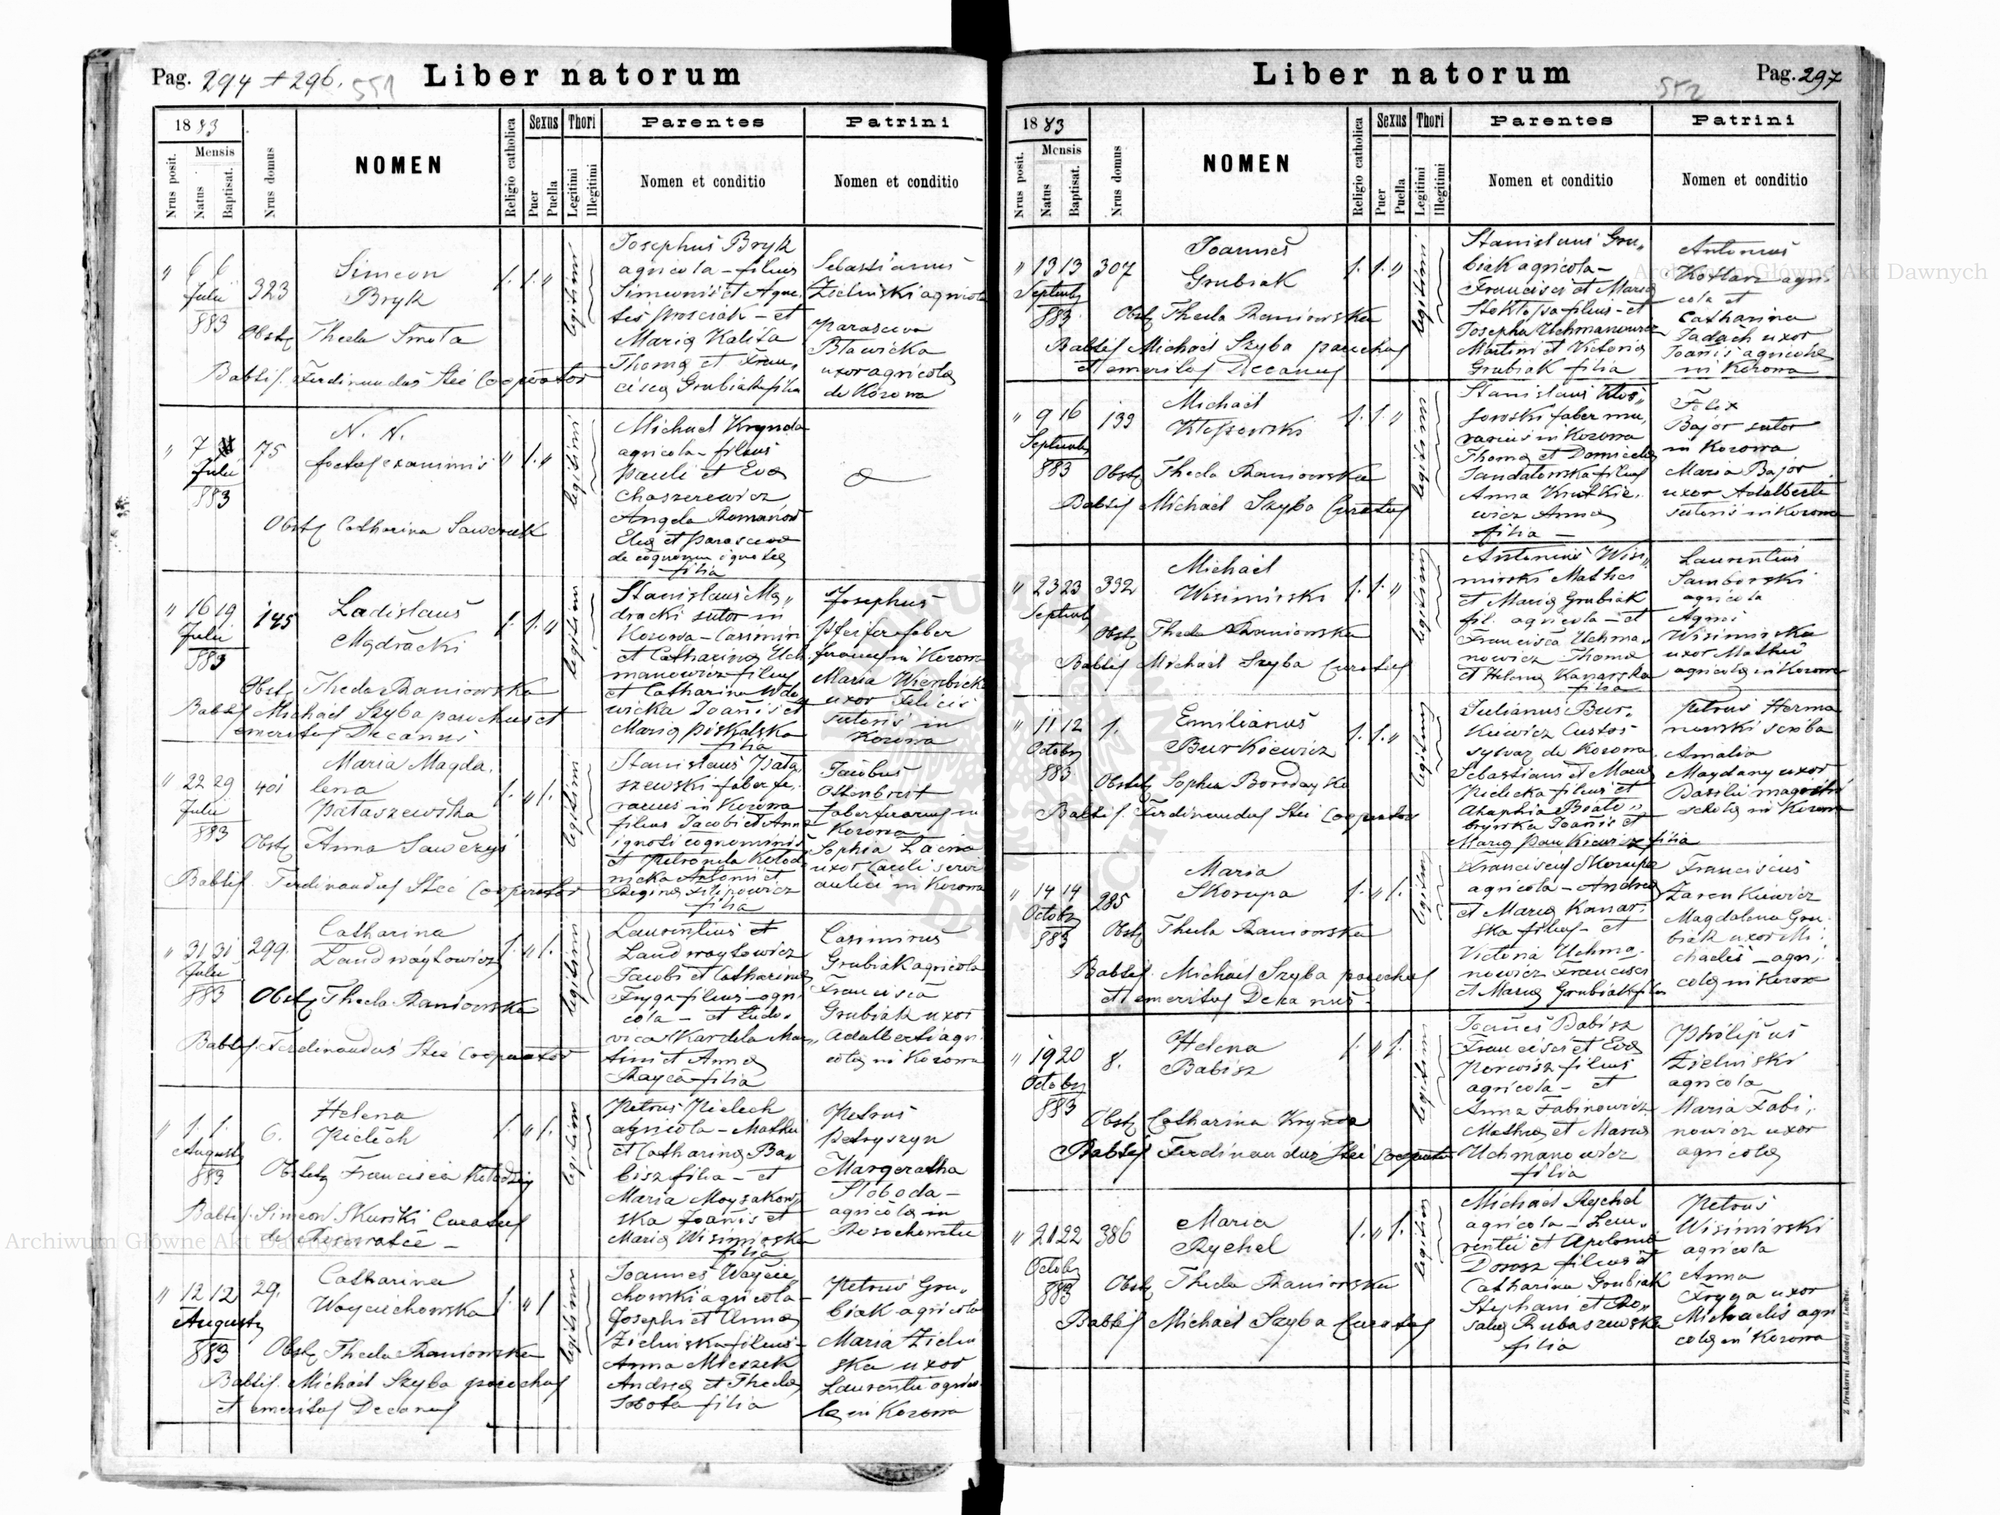 Pag. 294 + 296. 551
Liber natorum
1883
Mensis
Nrus posit.
Natus
Baptisat.
Nrus domus
NOMEN
Religio catholica
Sexus
Puer
Puella
Thori
Legitimi
Illegitimi
Parentes
Nomen et conditio
Patrini
Nomen et conditio
" 6 6
Julii
883
323
Simeon
Bryk
1. 1. "
legitimi
Obst. Thecla Smota
Babtis. Ferdinandus Stei Cooperator
Josephus Bryk
agricola – filius
Simeonis et Agne-
tis – et
Maria Kalita
Thoma et Fran-
cisca Grubiak filia
Sebastianus
Zielinski agricola
Parasceva
Bławicka
uxor agricola
de Kozowa
" 7
Julii
883
75
N. N.
foetus exanimis
" 1. "
legitimi
Obst. Catharina Sawczuk
Michael Krynda
agricola – filius
Pauli et Eva
Angela Romanów
Elia et Parasceva
de cognomine ignota
filia
" 16 19
Julii
883
145
Ladislaus
Mądracki
1. 1. "
legitimi
Obst. Thecla Raniowska
Babtis. Michael Szyba parochus et
emeritus Decanus
Stanislaus Mą-
dracki sutor in
Kozowa – Casimiri
et Catharina Uch-
manowicz filius
et Catharina
Joannis et
Maria
filia
Josephus
Pfeifer faber
ferarius in Kozowa
Maria Wierzbicka
uxor Felicis
sutoris in
Kozowa
" 22 29
Julii
883
401
Maria Magda-
lena
Pałaszewska
1. " 1.
legitimi
Obst. Anna Sawczyj
Babtis. Ferdinandus Stei Cooperator
Stanislaus Pała-
szewski faber fe-
rarius in Kozowa
filius Jacobi et Anna
ignoti cognominis
et Petronela Kołod-
nicka Antonii et
Regina Filipowicz
filia
Jacobus
faber ferarius in
Kozowa
Sophia
uxor Pauli servi
aulici in Kozowa
" 31 31
Julii
883
299
Catharina
Landwaytowicz
1. " 1.
legitimi
Obst. Thecla Raniowska
Babtis. Ferdinandus Stei Cooperator
Laurentius et
Landwaytowicz
Jacobi et Catharina
Fryga filius – agri-
cola – et Ludo-
vica Kardela Mar-
tini et Anna
filia
Casimirus
Grubiak agricola
Francisca
Grubiak uxor
Adalberti agri-
cola in Kozowa
" 1. 1.
Augusti
883
6.
Helena
Pielech
1. " 1.
legitimi
Obstetr. Francisca Kołodziej
Babtis. Simeon Skurski Curatus
de
Petrus Pielech
agricola – Mathei
et Catharina Ba-
bisz filia – et
Maria Moysakow-
ska Joannis et
Maria Wisimirska
filia
Petrus
Petryszyn
Margeretha
Słoboda –
agricola in
" 12 12
Augusti
883
29.
Catharina
Woyciechowska
1. " 1
legitimi
Obst. Thecla Raniowska
Babtis. Michael Szyba parochus
et emeritus Decanus
Joannes Woycie-
chowski agricola –
Josephi et Anna
Zielinska filius –
Anna Mleszek
Andrea et Thecla
Sobota filia
Petrus Gru-
biak agricola
Maria Zielin-
ska uxor
Laurentii agrico-
la in Kozowa
552
Liber natorum
Pag. 297
1883
Mensis
Nrus posit.
Natus
Baptisat.
Nrus domus
NOMEN
Religio catholica
Sexus
Puer
Puella
Thori
Legitimi
Illegitimi
Parentes
Nomen et conditio
Patrini
Nomen et conditio
" 13 13
Septemb
883
307
Joannes
Grubiak
1. 1. "
legitimi
Obst. Thecla Raniowska
Babtis. Michael Szyba parochus
et emeritus Decanus
Stanislaus Gru-
biak agricola –
Francisci et Maria
filius – et
Josepha Uchmanowicz
Martini et Victoria
Grubiak filia
Antonius
Kotlarz agri-
cola et
Catharina
Jadach uxor
Joannis agricola
in Kozowa
" 9 16
Septemb
883
139
Michael
1. 1. "
legitimi
Obst. Thecla Raniowska
Babtis. Michael Szyba Curatus
Stanislaus
faber mu-
rarius in Kozowa
Thoma et Domicela
filius
Anna
Anna
filia –
Felix
Bajor sutor
in Kozowa
Maria Bajor
uxor Adalberti
sutoris in Kozowa
" 23 23
Septemb
332
Michael
Wisimirski
1. 1. "
legitimi
Obst. Thecla Raniowska
Babtis. Michael Szyba Curatus
Antonius Wisi-
mirski Mathei
et Maria Grubiak
fil. agricola – et
Francisca Uchma-
nowicz Thoma
et Helena Kanarska
filia
Laurentius
Samborski
agricola
Agnes
Wisimirska
uxor Mathei
agricola in Kozowa
" 11 12
Octobr
883
1.
Emilianus
Burkiewicz
1. 1. "
legitimi
Obstetr. Sophia Borodayko
Babtis. Ferdinandus Stei Cooperator
Julianus Bur-
kiewicz Custos
sylvae de Kozowa
Sebastiani et Maria
Pielecka filius et
Ahaphia Biało-
brywka Joannis et
Maria Pankiewicz filia
Petrus Herma-
nowski scriba
Amalia
Maydany uxor
Basilii magistri
schola in Kozowa
" 14 14
Octobr
883
285
Maria
Skorupa
1. " 1.
legitimi
Obst. Thecla Raniowska
Babtis. Michael Szyba parochus
et emeritus Dekanus –
Franciscus Skorupa
agricola – Andrea
et Maria Kanar-
ska filius – et
Victoria Uchma-
nowicz Francisci
et Maria Grubiak filia
Franciscus
Zarenkiewicz
Magdalena Gru-
biak uxor Mi-
chaelis – agri-
cola in Kozow
" 19 20
Octobr
883
8.
Helena
Babisz
1. " 1.
legitimi
Obst. Catharina Krynda
Babtis. Ferdinandus Stei Cooperator
Joannes Babisz
Francisci et Eva
filius
agricola – et
Anna Fabinowicz
Mathia et Maria
Uchmanowicz
filia
Philipus
Zielinski
agricola
Maria Fabi-
nowicz uxor
agricola
" 21 22
Octobr
883
386
Maria
Rychel
1. " 1.
legitimi
Obst. Thecla Raniowska
Babtis. Michael Szyba Curatus
Michael Rychel
agricola – Lau-
rentii et Apolonia
Dorosz filius et
Catharina Grubiak
Stephani et Ro-
salia Rubaszewska
filia
Petrus
Wisimirski
agricola
Anna
Fryga uxor
Michaelis agri
cola in Kozowa
Z Drukarni Ludowej we Lwowie.
Archiwum Główne Akt Dawnych
Archiwum Główne Akt Dawnych